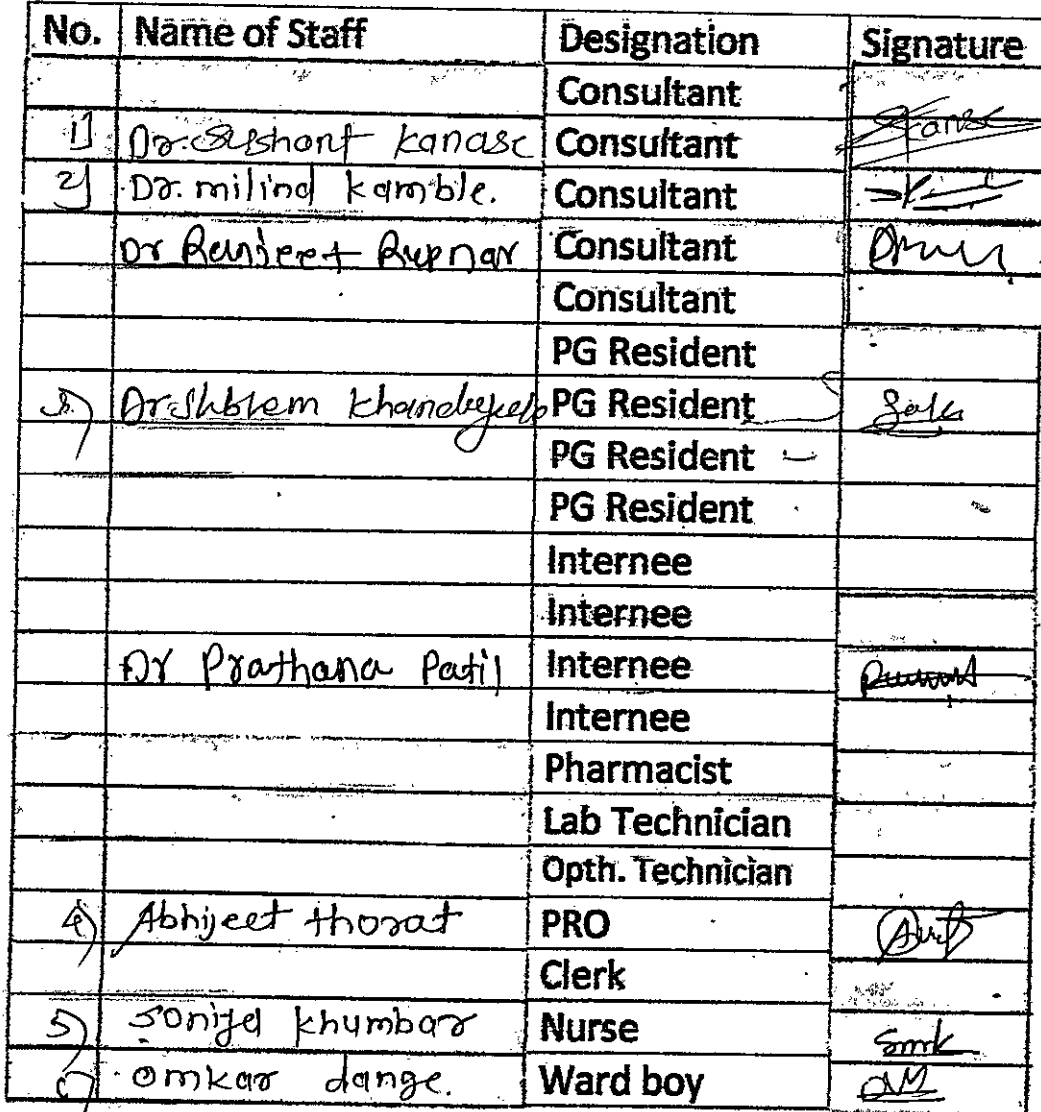 No. Name of Staff Designation Signature
Consultant
1] Dr. Sushant Kanase Consultant Kanase
2] Dr. milind kamble. Consultant
Dr Ranjeet Rupnar Consultant
Consultant
PG Resident
3) Dr. PG Resident
PG Resident
PG Resident
Internee
Internee
Dr Prathana Patil Internee
Internee
Pharmacist
Lab Technician
Opth. Technician
4) Abhijeet thorat PRO
Clerk
5) khumbar Nurse Smk
omkar dange. Ward boy